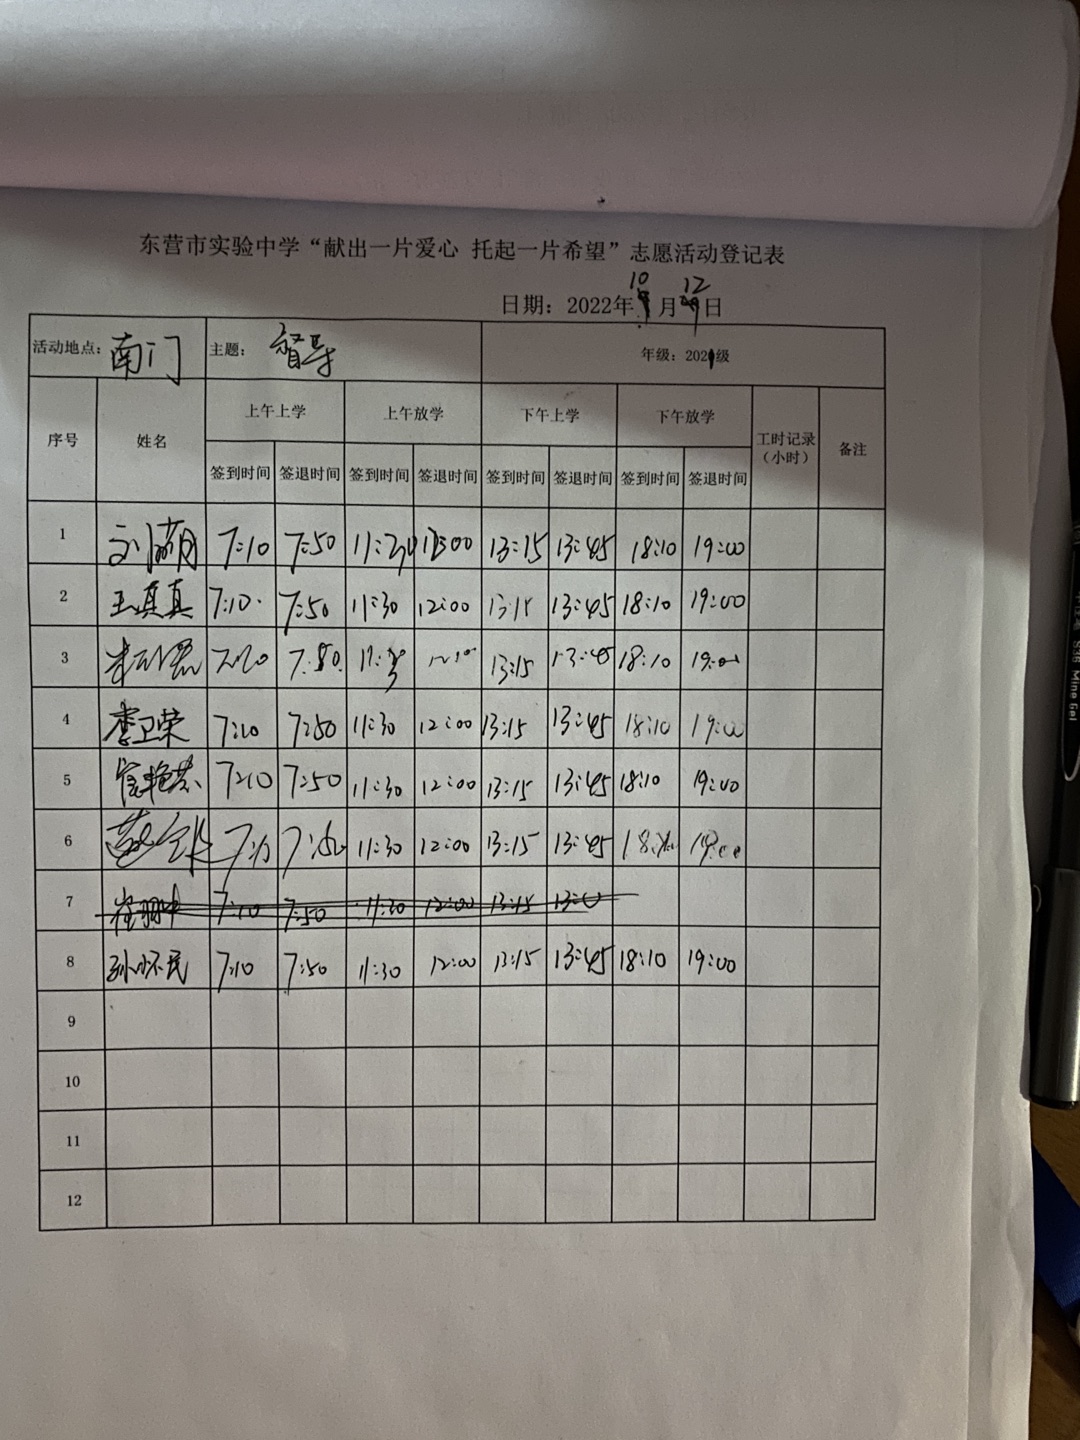 东营市实验中学“献出一片爱心 托起一片希望”志愿活动登记表
日期：2022年10月12日
活动地点：南门 主题：督导 年级：2021级
序号 姓名 上午上学 上午放学 下午上学 下午放学 工时记录（小时） 备注
签到时间 签退时间 签到时间 签退时间 签到时间 签退时间 签到时间 签退时间
1 7:10 7:50 11:30 12:00 13:15 13:45 18:10 19:00
2 王真真 7:10 7:50 11:30 12:00 13:15 13:45 18:10 19:00
3 7:50 11:30 13:15 13:45 18:10 19:00
4 李卫荣 7:10 7:50 11:30 12:00 13:15 13:45 18:10 19:00
5 7:10 7:50 11:30 12:00 13:15 13:45 18:10 19:00
6 11:30 12:00 13:15 13:45 19:00
7 7:10 7:50 11:30 12:00 13:15
8 孙怀民 7:10 7:50 11:30 12:00 13:15 13:45 18:10 19:00
9
10
11
12
S36 Mine Gel